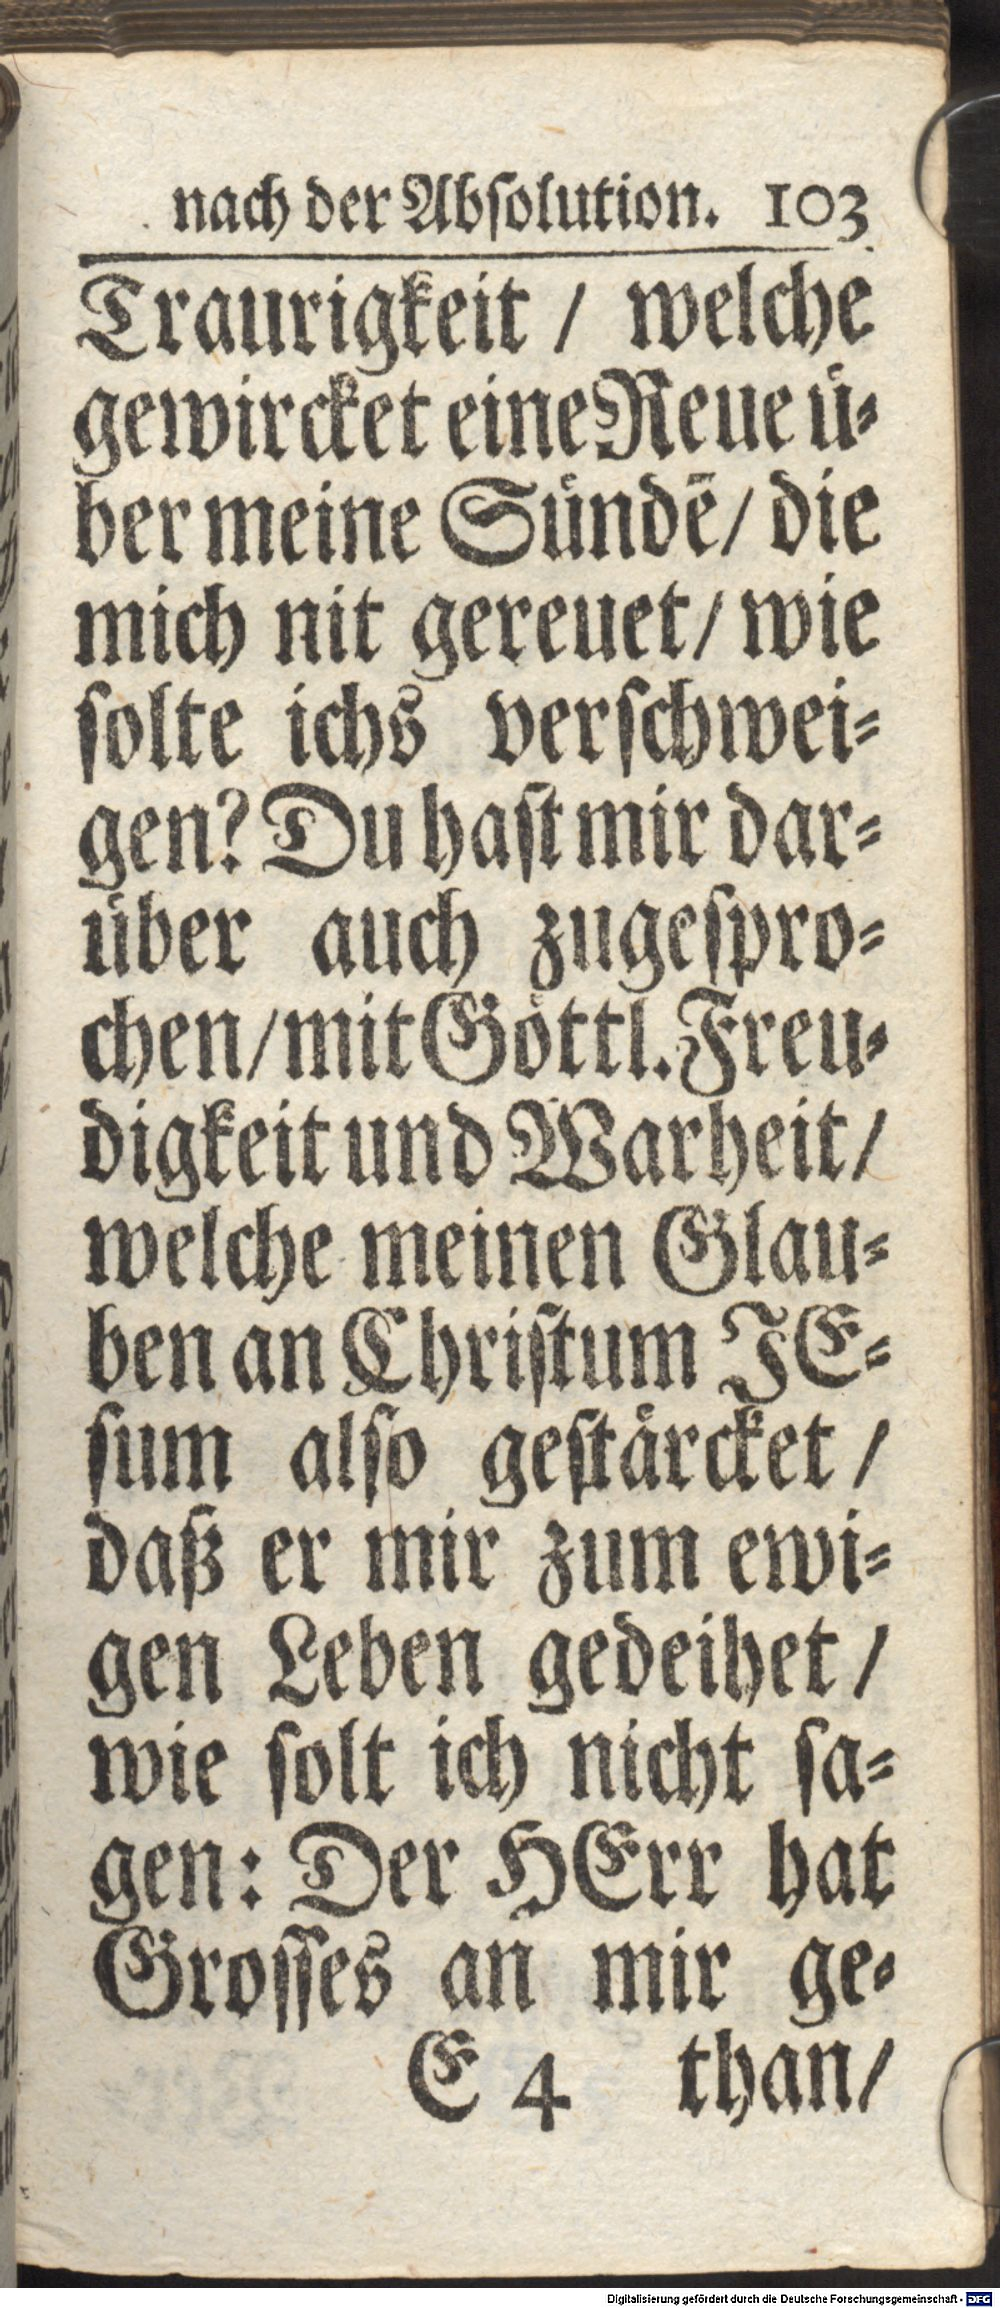 nach der Absolution. 103
Traurigkeit / welche
gewircket eine Reue uͤ⸗
ber meine Suͤndē / die
mich nit gereuet / wie
ſolte ichs verſchwei⸗
gen? Du haſt mir dar⸗
uͤber auch zugeſpro⸗
chen / mit Goͤttl. Freu⸗
digkeit und Warheit /
welche meinen Glau⸗
ben an Chriſtum JE⸗
ſum alſo geſtaͤrcket /
daß er mir zum ewi⸗
gen Leben gedeihet /
wie ſolt ich nicht ſa⸗
gen: Der HErr hat
Groſſes an mir ge⸗
E 4 than /
Digitalisierung gefördert durch die Deutsche Forschungsgemeinschaft - DFG